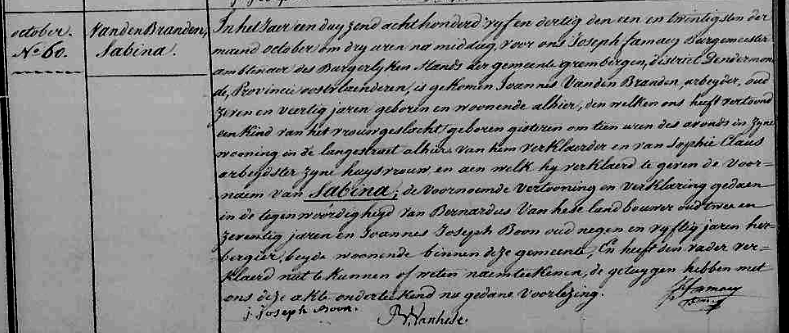 october.
No 60.
Vanden Branden,
Sabina.
In het Jaer een duyzend acht honderd vyf en dertig den een en twintigsten der
maend october om dry uren na middag, voor ons Joseph famaey Burgemeester
ambtenaer des Burgerlyken Stands der gemeente grembergen, district Dendermon-
de, Provincie oostvlaenderen, is gekomen Joannes Vanden Branden, arbeyder, oud
zeven en veertig jaren geboren en woonende alhier, den welken ons heeft vertoond
een kind van het vrouwgeslacht geboren gisteren om tien uren des avonds in zyne
wooning in de langestraet alhier, van hem verklaerder en van Sophie Claus
arbeydster zyne huysvrouw, en aen welk hy verklaerd te geven de voor-
naem van Sabina; de voornoemde vertooning en verklaring gedaen
in de tegenwoordigheyd van Bernardus Van hese landbouwer oud twee en
zeventig jaren en Joannes Joseph Boon oud negen en vyftig jaren her-
bergier, beyde woonende binnen deze gemeente, En heeft den vader ver-
klaerd niet te kunnen of weten naemteekenen, de getuygen hebben met
ons deze akte onderteekend na gedane voorlezing.
j. joseph Boon.
B. Vanhese.
J. famaey